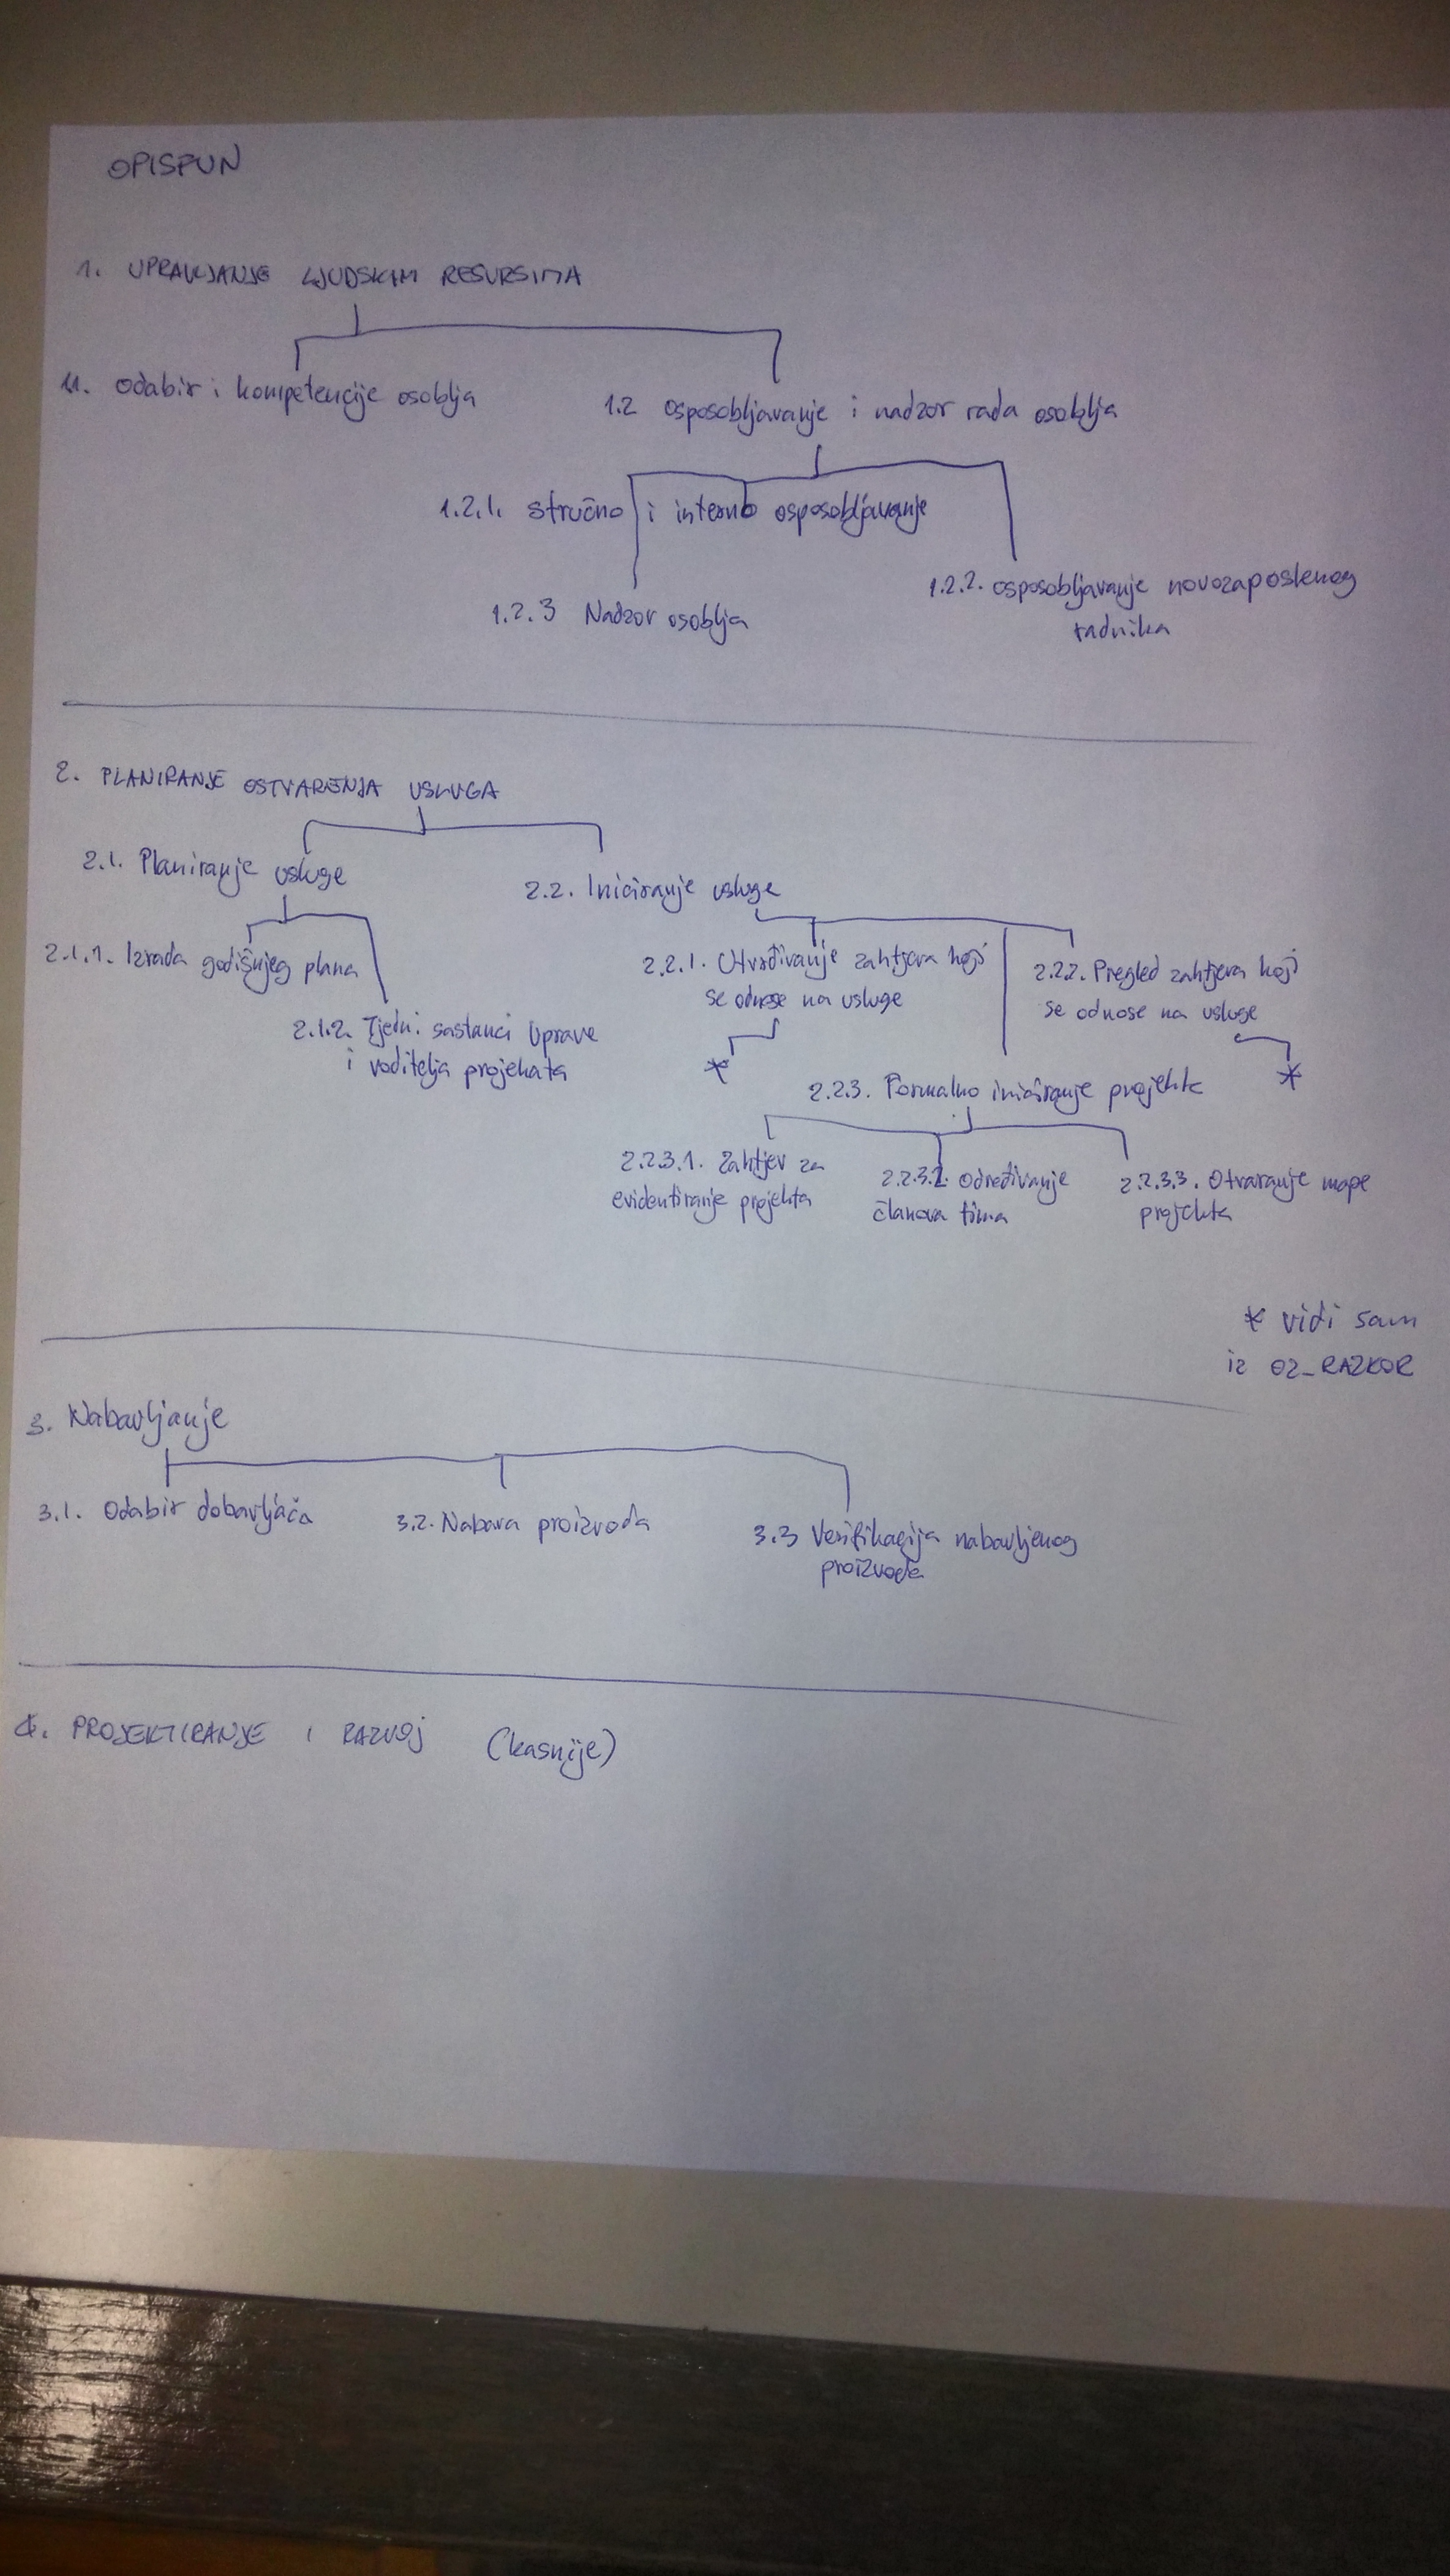 OPISFUN
1. UPRAVLJANJE LJUDSKIM RESURSIMA
1.1. Odabir i kompetencije osoblja
1.2 osposobljavanje i nadzor rada osoblja
1.2.1. stručno i interno osposobljavanje
1.2.2. osposobljavanje novozaposlenog
radnika
1.2.3 Nadzor osoblja
2. PLANIRANJE OSTVARENJA USLUGA
2.1. Planiranje usluge
2.2. Iniciranje usluge
2.1.1. Izrada godišnjeg plana
2.1.2. Tjedni sastanci Uprave
i voditelja projekata
2.2.1. Utvrđivanje zahtjeva koji
se odnose na usluge
*
2.2.2. Pregled zahtjeva koji
se odnose na usluge
*
2.2.3. Formalno iniciranje projekta
2.2.3.1. Zahtjev za
evidentiranje projekta
2.2.3.2. određivanje
članova tima
2.2.3.3. Otvaranje mape
projekta
* vidi sam
iz 02_RAZKOR
3. Nabavljanje
3.1. Odabir dobavljača
3.2. Nabava proizvoda
3.3 Verifikacija nabavljenog
proizvoda
4. PROJEKTIRANJE I RAZVOJ (kasnije)